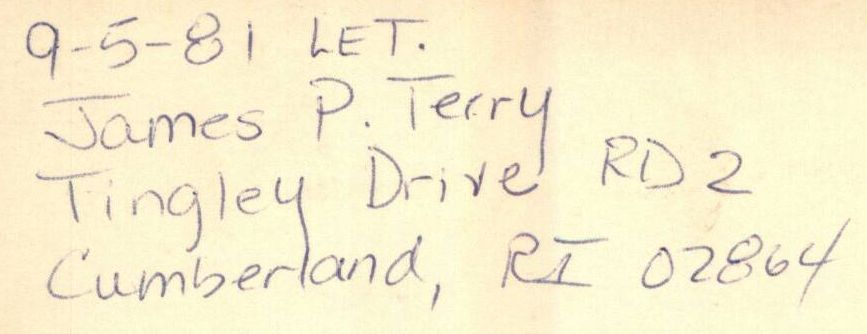 9-5-81 LET.
James P. Terry
Tingley Drive RD 2
Cumberland, RI 02864